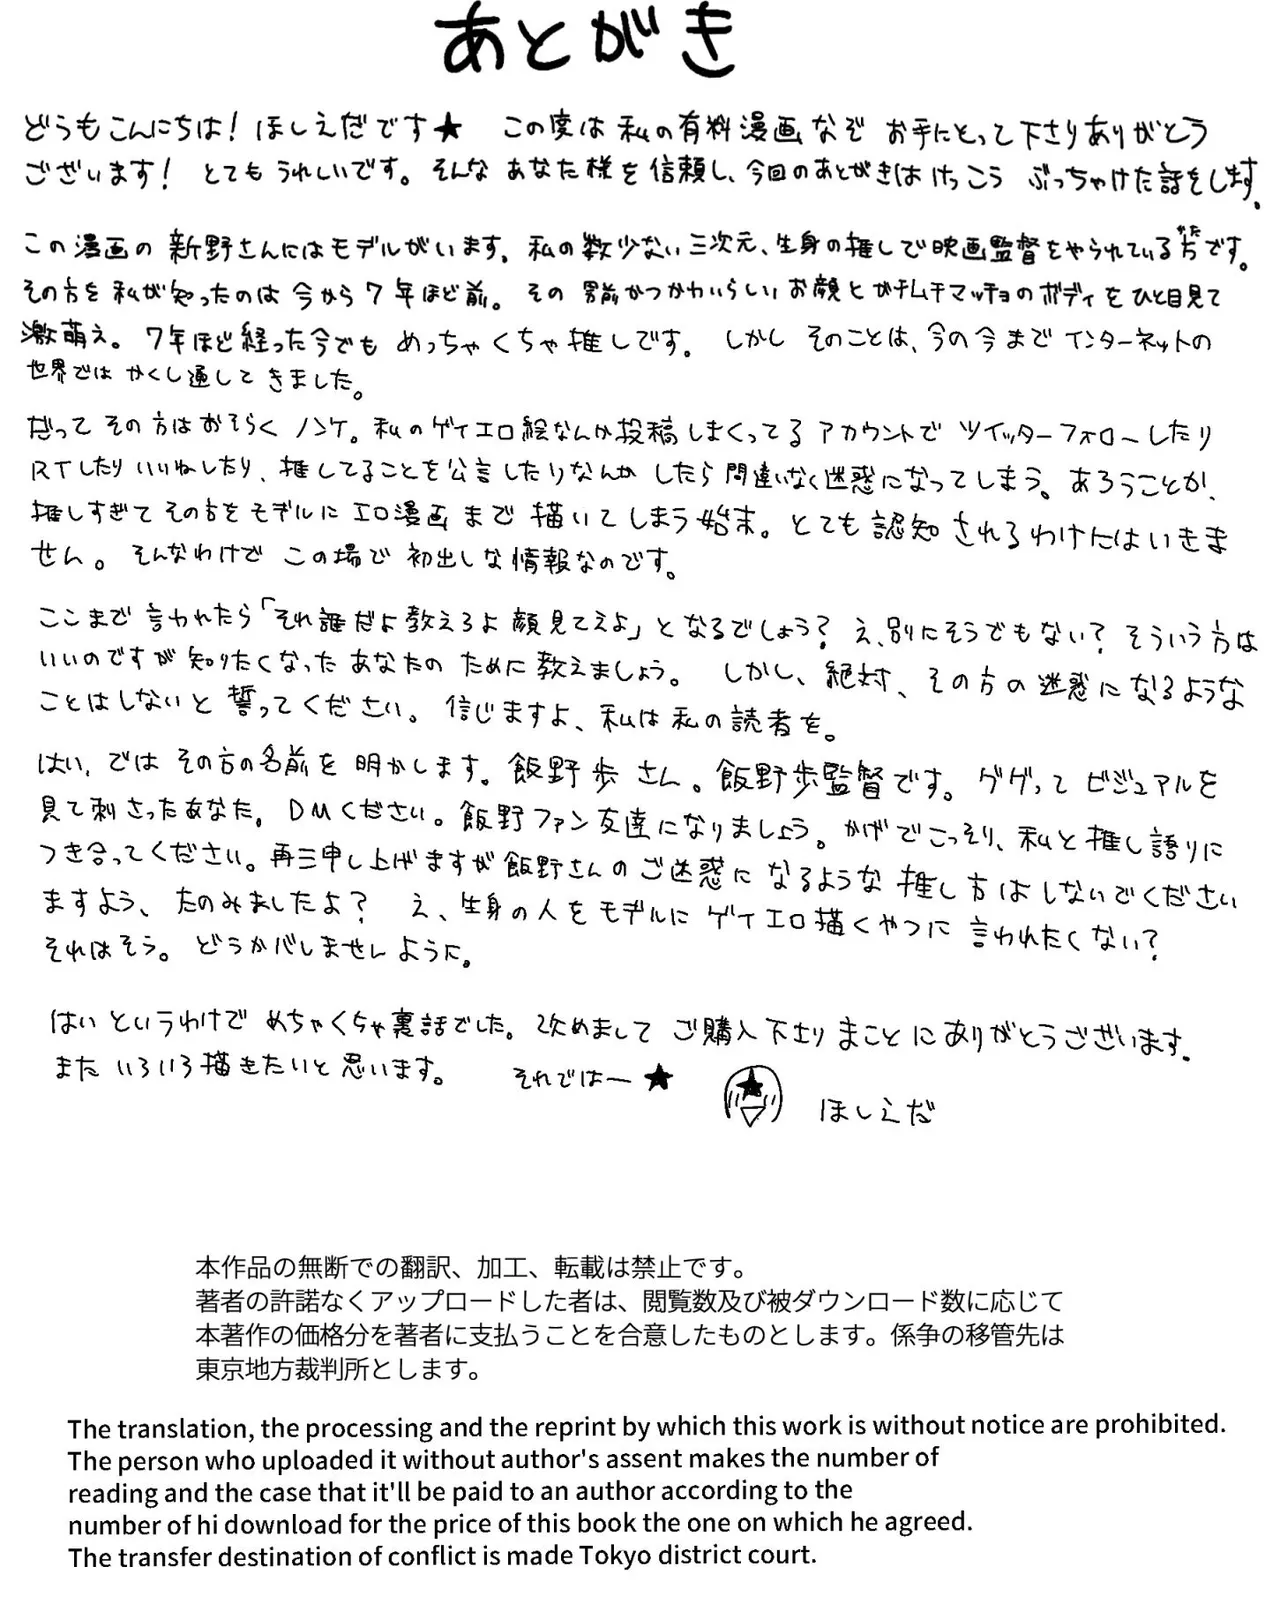 あとがき
どうもこんにちは！ほしえだです★ この度は私の有料漫画なぞお手にとって下さりありがとう
ございます！とてもうれしいです。そんなあなた様を信頼し、今回のあとがきはけっこうぶっちゃけた話をします。
この漫画の新野さんにはモデルがいます。私の数少ない三次元、生身の推しで映画監督をやられている方です。
その方を私が知ったのは今から7年ほど前。その男前かつかわいらしいお顔とガチムチマッチョのボディをひと目見て
激萌え。7年ほど経った今でもめっちゃくちゃ推しです。しかしそのことは、今の今までインターネットの
世界ではかくし通してきました。
だってその方はおそらくノンケ。私のゲイエロ絵なんか投稿しまくってるアカウントでツイッターフォローしたり
RTしたりいいねしたり、推してることを公言したりなんかしたら間違いなく迷惑になってしまう。あろうことか、
推しすぎてその方をモデルにエロ漫画まで描いてしまう始末。とても認知されるわけにはいきま
せん。そんなわけでこの場で初出しな情報なのです。
ここまで言われたら「それ誰だよ教えろよ顔見てえよ」となるでしょう？え、別にそうでもない？そういう方は
いいのですが知りたくなったあなたのために教えましょう。しかし、絶対、その方の迷惑になるような
ことはしないと誓ってください。信じますよ、私は私の読者を。
はい、ではその方の名前を明かします。飯野歩さん。飯野歩監督です。ググってビジュアルを
見て刺さったあなた。DMください。飯野ファン友達になりましょう。かげでこっそり、私と推し語りに
つき合ってください。再三申し上げますが飯野さんのご迷惑になるような推し方はしないでください
ますよう、たのみましたよ？え、生身の人をモデルにゲイエロ描くやつに言われたくない？
それはそう。どうかバレませんように。
はいというわけでめちゃくちゃ裏話でした。改めましてご購入下さりまことにありがとうございます。
またいろいろ描きたいと思います。それではー★ ほしえだ
本作品の無断での翻訳、加工、転載は禁止です。
著者の許諾なくアップロードした者は、閲覧数及び被ダウンロード数に応じて
本著作の価格分を著者に支払うことを合意したものとします。係争の移管先は
東京地方裁判所とします。
The translation, the processing and the reprint by which this work is without notice are prohibited.
The person who uploaded it without author's assent makes the number of
reading and the case that it'll be paid to an author according to the
number of hi download for the price of this book the one on which he agreed.
The transfer destination of conflict is made Tokyo district court.